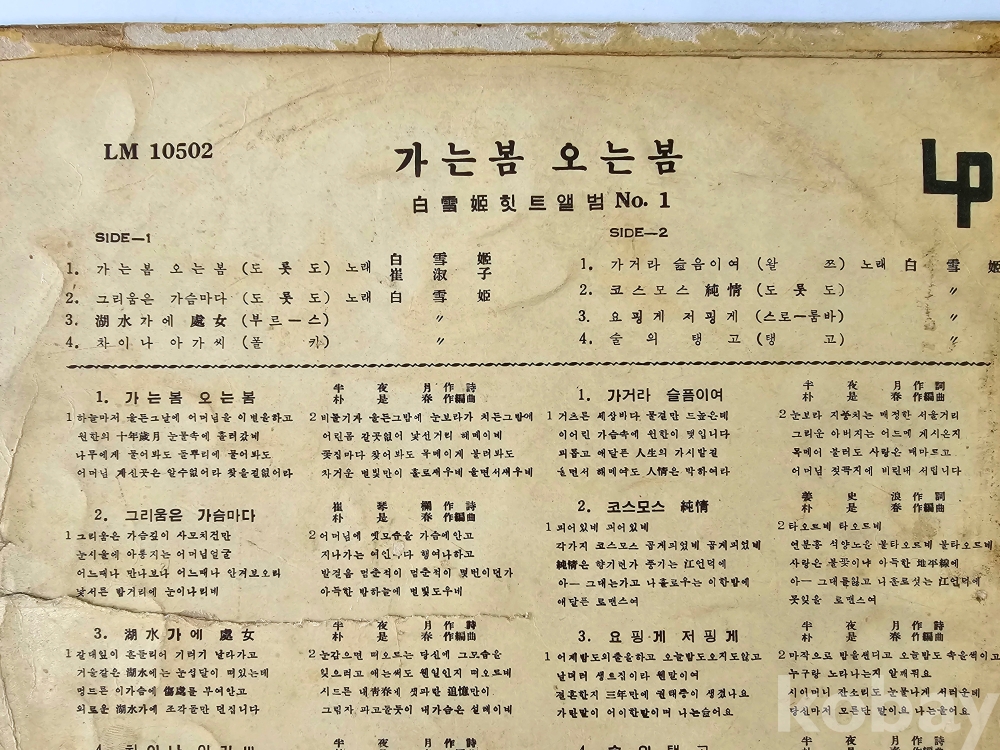 LM 10502
가는봄 오는봄
LP
白雪姬힛트앨범 No. 1
SIDE—1
1. 가는봄 오는봄 (도롯도) 노래 白雪姬
崔淑子
2. 그리움은 가슴마다 (도롯도) 노래 白雪姬
3. 湖水가에 處女 (부르—스) 〃
4. 차이나 아가씨 (폴키) 〃
SIDE—2
1. 가거라 슬음이여 (왈쯔) 노래 白雪姬
2. 코스모스 純情 (도롯도) 〃
3. 요핑게 저핑게 (스로—룸바) 〃
4. 술의 탱고 (탱고) 〃
1. 가는봄 오는봄
半夜月 作詩
朴是春 作編曲
1 하늘마저 울든그날에 어머님을 이별을하고
원한의 十年歲月 눈물속에 흘러갔네
나무에게 물어봐도 돌뿌리에 물어봐도
어머님 계신곳은 알수없어라 찾을길없어라
2 비둘기가 울든그밤에 눈보라가 치든그밤에
어린몸 갈곳없이 낯선거리 헤메이네
꽃집마다 찾어봐도 목메이게 불러봐도
차거운 별빛만이 홀로새우네 울면서새우네
2. 그리움은 가슴마다
崔琴 作詩
朴是春 作編曲
1 그리움은 가슴깊이 사모치건만
눈시울에 아롱지는 어머님얼굴
어느때나 만나보나 어느때나 안겨보오리
낯서른 밤거리에 눈이나리네
2 어머님에 옛모습을 가슴에안고
지나가는 여인 다 행여나하고
발걸음 멈춘적이 멈춘적이 몇번이던가
아득한 밤하늘에 별빛도우네
3. 湖水가에 處女
半夜月 作詩
朴是春 作編曲
1 갈대잎이 흔들리어 기러기 날라가고
거울같은 湖水에는 눈섭달이 떠있는데
멍드른 이가슴에 傷處를 부여안고
외로운 湖水가에 조각돌만 던집니다
2 눈감으면 떠오르는 당신에 그모습을
잊으려고 애는써도 웬일인지 떠오르네
시드른 내靑春에 샛파란 追憶만이
그림자 파고들듯이 내가슴은 설레이네
4. 차이나 아가씨
半夜月 作詩
1. 가거라 슬픔이여
半夜月 作詞
朴是春 作編曲
1 거츠른 세상바다 물결만 드높은데
이어린 가슴속에 원한이 맺입니다
피롭고 애달픈 人生의 가시발길
울면서 해메여도 人情은 박하여라
2 눈보라 지풍치는 매정한 서울거리
그리운 아버지는 어드메 게시온지
목메어 불러도 사랑은 메마르고
어머님 젖꼭지에 비린내 서립니다
2. 코스모스 純情
姜史浪 作詞
朴是春 作編曲
1 피어있네 피어있네
각가지 코스모스 곱게피었네 곱게피었네
純情은 향기런가 풍기는 江언덕에
아— 그대는가고 나홀로우는 이한밤에
애달픈 로맨스여
2 타오르네 타오르네
연분홍 석양노은 불타오르네 불타오르네
사랑은 불꽃이냐 아득한 地平線에
아— 그대를잃고 나홀로섯는 江언덕에
못잊을 로맨스여
3. 요핑게 저핑게
半夜月 作詩
朴是春 作編曲
1 어제밤도외출을하고 오늘밤도오지도않고
날며머 생트집이라 웬말이여
결혼한지 三年만에 권태증이 생겼나요
가란말이 어이한말이며 나는슬어요
2 마작으로 밤을샌디고 오늘밤도 속을썩이고
누구랑 노타나는지 알깨줘요
시어머니 잔소리도 눈물나게 서러운데
당신마저 모른단 말이요 나는울어요
4. 술의 탱고
半夜月 作詞
kobay